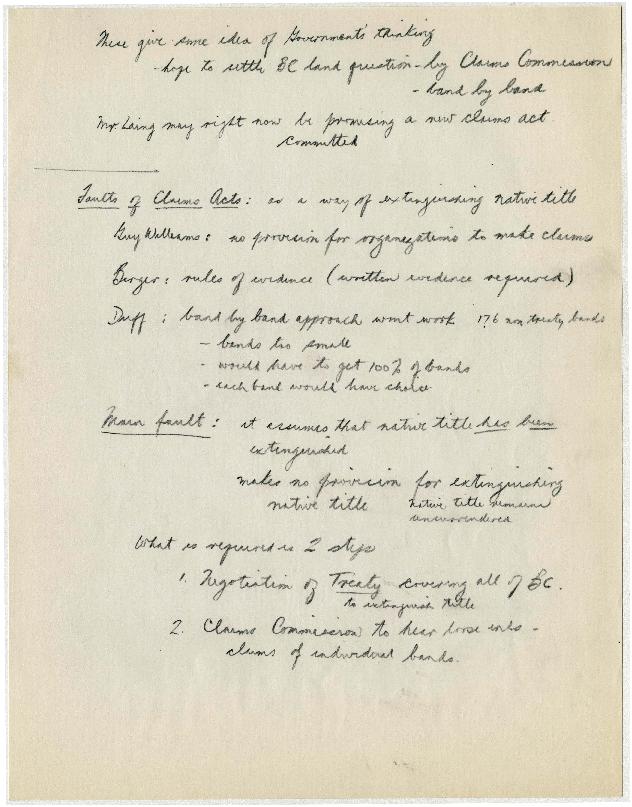 These give some idea of Government's thinking
- hope to settle BC land question - by Claims Commission
- band by band
Mr. Laing may right now be promising a new claims act
committed
Faults of Claims Acts: as a way of extinguishing native title
Guy Williams: no provision for organizations to make claims
Berger: rules of evidence (written evidence required)
Duff: band by band approach wont work 176 non treaty bands
- bands too small
- would have to get 100% of bands
- each band would have choice
Main fault: it assumes that native title has been
extinguished
makes no provision for extinguishing
native title native title remains
unsurrendered
What is required is 2 steps
1. Negotiation of Treaty covering all of BC.
to extinguish title
2. Claims Commission to hear loose ends -
claims of individual bands.